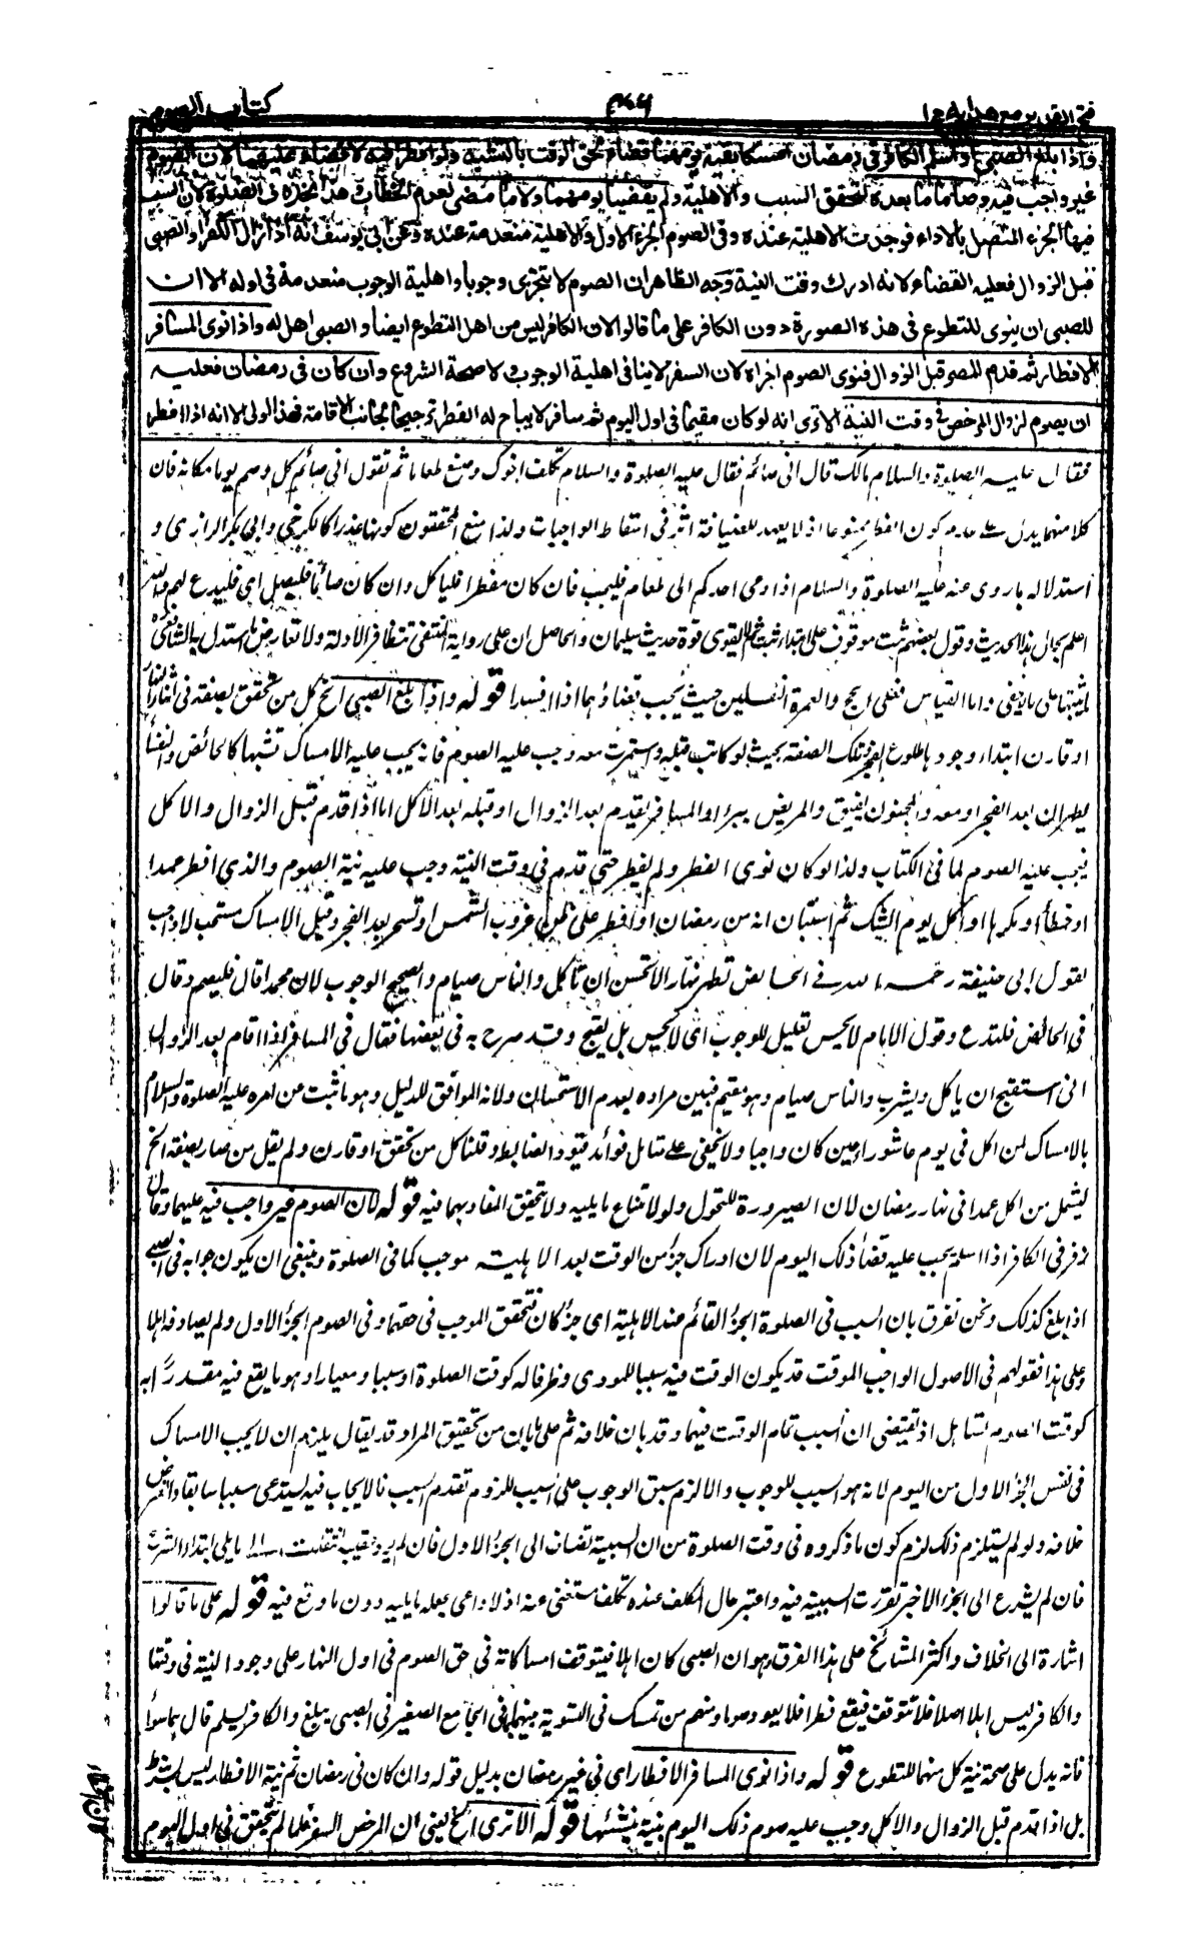 فتح القدير مع هدايه ج ١
كتاب الصوم
واذا بلغ الصبي او اسلم الكافر في رمضان امسكا بقية يومهما قضاء لحق الوقت بالتشبه ولو افطرا فيه لا قضاء عليهما لان الصوم
غير واجب فيه وصاما ما بعده لتحقق السبب والاهلية ولم يقضيا يومهما ولا ما مضى لعدم الخطاب وهذا بخلاف الصلوة لان السبب
فيها الجزء المتصل بالاداء فوجدت الاهلية عنده وفي الصوم الجزء الاول والاهلية منعدمة عنده وعن ابي يوسف انه اذا زال الكفر او الصبى
قبل الزوال فعليه القضاء لانه ادرك وقت النية وجه الظاهر ان الصوم لا يتجزى وجوبا واهلية الوجوب منعدمة في اوله الا ان
للصبي ان ينوى للتطوع في هذه الصورة دون الكافر على ما قالوا لان الكافر ليس من اهل التطوع ايضا والصبي اهل له واذا نوى المسافر
الافطار ثم قدم المصر قبل الزوال فنوى الصوم اجزاه لان السفر لا ينافى اهلية الوجوب ولا صحة الشروع وان كان في رمضان فعليه
ان يصوم لزوال المرخص في وقت النية الا ترى انه لو كان مقيما في اول اليوم ثم سافر لا يباح له الفطر ترجيحا لجانب الاقامة فهذا اولى الا انه اذا افطر
فقال عليه الصلوة والسلام مالك قال انى صائم فقال عليه الصلوة والسلام تكلف اخوك وصنع طعاما ثم تقول انى صائم كل وصم يوما مكانه فان
كلا منهما يدل على عدم كون الفطر ممنوعا اذ لا يعهد للضيافة اثر في اسقاط الواجبات ولذا منع المحققون كونها عذرا كالكرخي وابي بكر الرازى و
استدلا له بما روى عنه عليه الصلوة والسلام اذا دعى احدكم الى طعام فليجب فان كان مفطرا فليأكل وان كان صائما فليصل اى فليدع لهم والله
اعلم بحال هذا الحديث وقول بعضهم ثبت موقوف على ابداء ثبت ثم لا يقوى قوة حديث سليمان والحاصل ان على رواية المنتقى تتظافر الادلة ولا تعارض ما استدل به الشافعي
ما يثبتها على ما لا يخفى واما القياس فعلى الحج والعمرة النفلين حيث يجب قضاؤهما اذا افسدا قوله واذا بلغ الصبي الخ كل من تحقق بصفة في اثناء النهار
او قارن ابتداء وجودها طلوع الفجر وتلك الصفة بحيث لو كانت قبله واستمرت معه وجب عليه الصوم فانه يجب عليه الامساك تشبها كالحائض والنفساء
يطهران بعد الفجر او معه والمجنون يفيق والمريض يبرأ والمسافر يقدم بعد الزوال او قبله بعد الاكل اما اذا قدم قبل الزوال والاكل
فيجب عليه الصوم لما في الكتاب ولذا لو كان نوى الفطر ولم يفطر حتى قدم في وقت النية وجب عليه نية الصوم والذي افطر عمدا
او خطأ او مكرها او اكل يوم الشك ثم استبان انه من رمضان او افطر على ظن غروب الشمس او تسحر بعد الفجر وقيل الامساك مستحب لا واجب
لقول ابى حنيفة رحمه الله في الحائض تطهر نهارا لا تحسن ان تاكل والناس صيام والصحيح الوجوب لان محمدا قال فليصم وقال
في الحائض فلتدع وقول الامام لا يحسن تعليل للوجوب اى لا يحسن بل يقبح وقد صرح به في بعضها فقال في المسافر اذا اقام بعد الزوال
انى استقبح ان ياكل ويشرب والناس صيام وهو مقيم فبين مراده بعدم الاستحسان ولانه الموافق للدليل وهو ما ثبت من امره عليه الصلوة والسلام
بالامساك لمن اكل في يوم عاشوراء حين كان واجبا ولا يخفى على متأمل فوائد قيود الضابط وقلنا كل من تحقق او قارن ولم يقل من صار بصفة الخ
ليشمل من اكل عمدا في نهار رمضان لان الصيرورة للتحول ولو لامتناع ما يليه ولا يتحقق المفاد بهما فيه قوله لان الصوم غير واجب فيه عليهما وقال
زفر في الكافر اذا اسلم يجب عليه قضاء ذلك اليوم لان ادراك جزء من الوقت بعد الاهلية موجب كما في الصلوة وينبغى ان يكون جوابه في الصبي
اذا بلغ كذلك ونحن نفرق بان السبب في الصلوة الجزء القائم عند الاهلية اى جزء كان فتحقق الموجب في حقهما وفي الصوم الجزء الاول ولم يصادفه اهلا
وعلى هذا فقولهم في الاصول الواجب الموقت قد يكون الوقت فيه سببا للمودى وظرفا له كوقت الصلوة او سببا ومعيارا وهو ما يقع فيه مقدرا به
كوقت الصوم تساهل اذ يقتضى ان السبب تمام الوقت فيهما وقد بان خلافه ثم على ما بان من تحقيق المراد قد يقال يلزم ان لا يجب الامساك
في نفس الجزء الاول من اليوم لانه هو السبب للوجوب والا لزم سبق الوجوب على السبب للزوم تقدم السبب فالايجاب فيه يستدعى سببا سابقا والفرض
خلافه ولو لم يستلزم ذلك لزم كون ما ذكروه في وقت الصلوة من ان السببية تضاف الى الجزء الاول فان لم يود عقيبه انتقلت الى ما يلى ابتداء الشروع
فان لم يشرع الى الجزء الاخير تقررت السببية فيه واعتبر حال المكلف عنده تكلف مستغنى عنه اذ لا داعى بجعله ما يليه دون ما وقع فيه قوله على ما قالوا
اشارة الى الخلاف واكثر المشائخ على هذا الفرق وهو ان الصبي كان اهلا فيتوقف امساكاته في حق الصوم في اول النهار على وجود النية في وقتها
والكافر ليس اهلا اصلا فلا تتوقف فيقع فطرا فلا يعود صوما ومنهم من تمسك في التسوية بينهما بما في الجامع الصغير في الصبي يبلغ والكافر يسلم قال هما سواء
فانه يدل على صحة نية كل منهما للتطوع قوله واذا نوى المسافر الافطار اى في غير رمضان بدليل قوله وان كان في رمضان ثم نية الافطار ليس بشرط
بل اذا قدم قبل الزوال والاكل وجب عليه صوم ذلك اليوم بنية ينشئها قوله الا ترى الخ يعنى ان المرخص السفر فلما لم يتحقق في اول اليوم